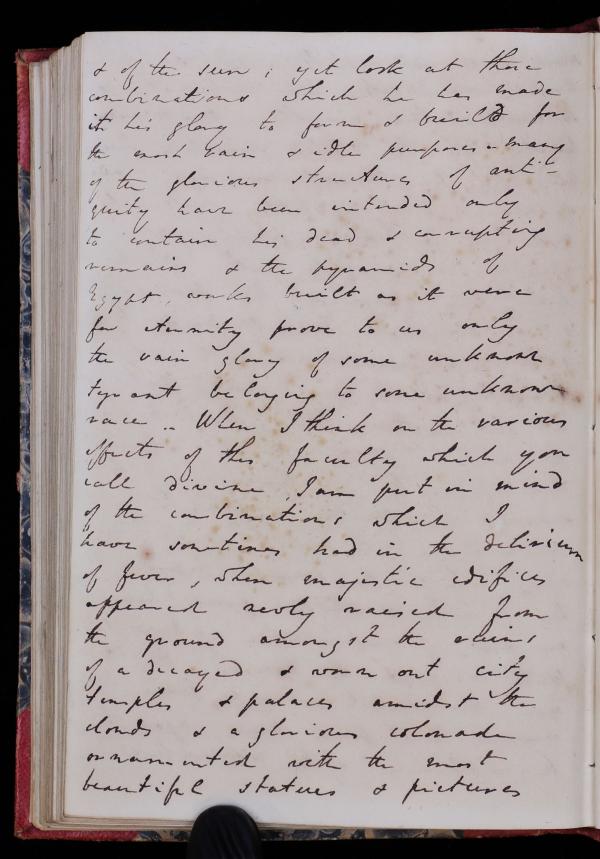 & of the sun; yet look at those
combinations which he has made
it his glory to form & build for
the most vain & idle purposes - many
of the glorious structures of anti-
quity have been intended only
to contain his dead & corrupting
remains & the pyramids of
Egypt, works built as it were
for eternity prove to us only
the vain glory of some unknown
tyrant belonging to some unknown
race .. When I think on the various
effects of this faculty which you
call divine, I am put in mind
of the combinations which I
have sometimes had in the delirium
of fever, when majestic edifices
appeared newly raised from
the ground amongst the ruins
of a decayed & worn out city
temples & palaces amidst the
clouds & a glorious colonade
ornamented with the most
beautifl statues & pictures